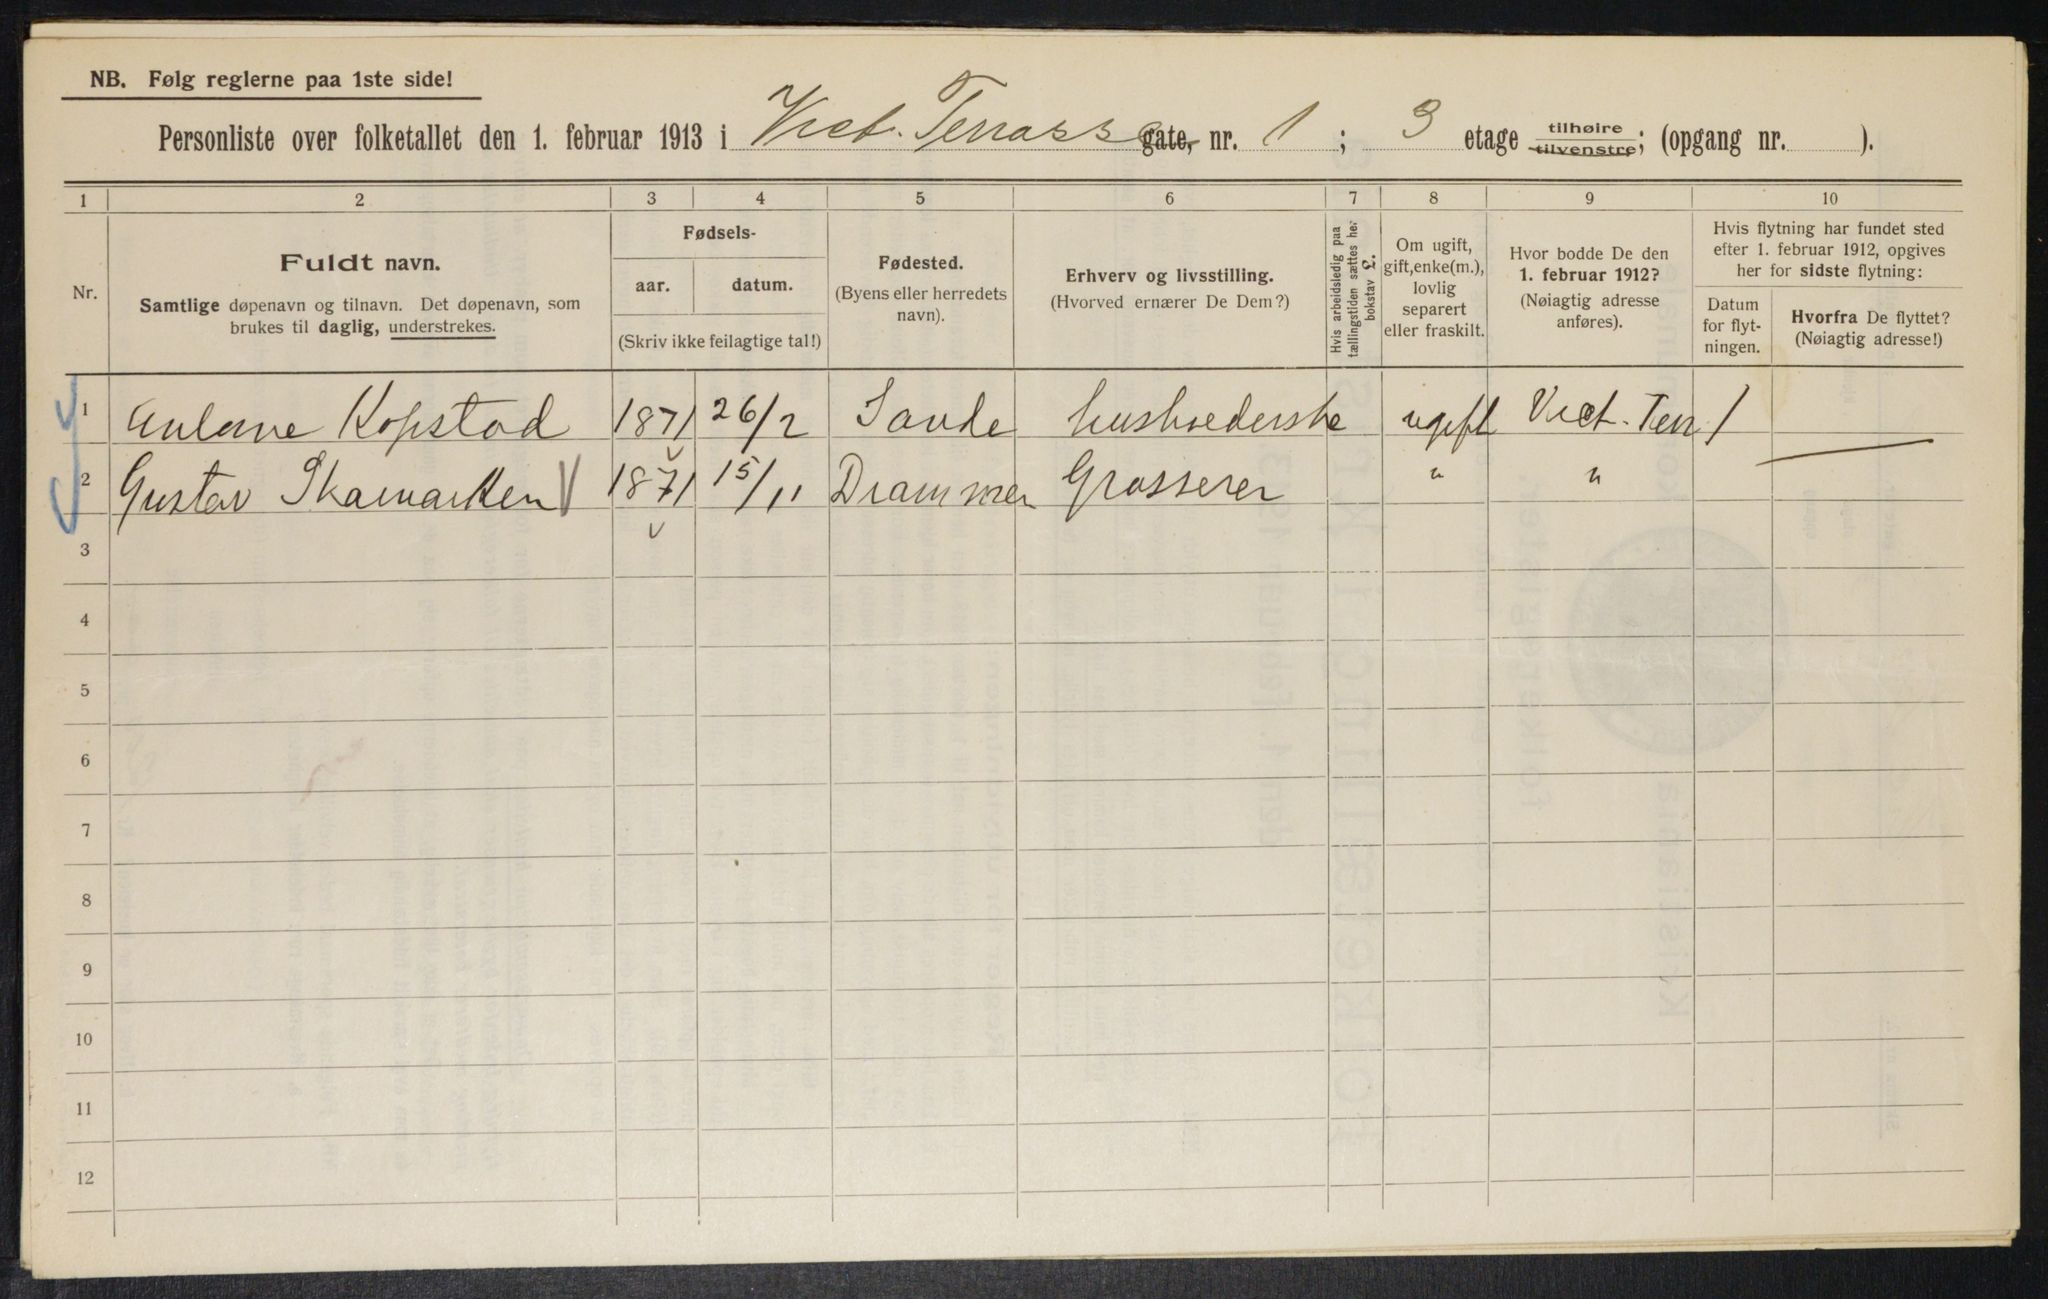 NB. Følg reglerne paa 1ste side!
Personliste over folketallet den 1. februar 1913 i Vict. Terrasse gate, nr. 1 ; 3 etage tilhøire tilvenstre; (opgang nr. ).
1 2 3 4 5 6 7 8 9 10
Nr.
Fuldt navn.
Samtlige døpenavn og tilnavn. Det døpenavn, som
brukes til daglig, understrekes.
Fødsels-
aar. datum.
(Skriv ikke feilagtige tal!)
Fødested.
(Byens eller herredets
navn).
Erhverv og livsstilling.
(Hvorved ernærer De Dem?)
Hvis arbeidsledig paa
tællingstiden sættes her
bokstav £.
Om ugift,
gift, enke(m.),
lovlig
separert
eller fraskilt.
Hvor bodde De den
1. februar 1912?
(Nøiagtig adresse
anføres).
Hvis flytning har fundet sted
efter 1. februar 1912, opgives
her for sidste flytning:
Datum
for flyt-
ningen.
Hvorfra De flyttet?
(Nøiagtig adresse!)
1 Kopstad 1871 26/2 Sande husholderske ugift Vict. Terr 1
2 Gustav Skamarken 1871 15/11 Drammen Grosserer " "
3
4
5
6
7
8
9
10
11
12